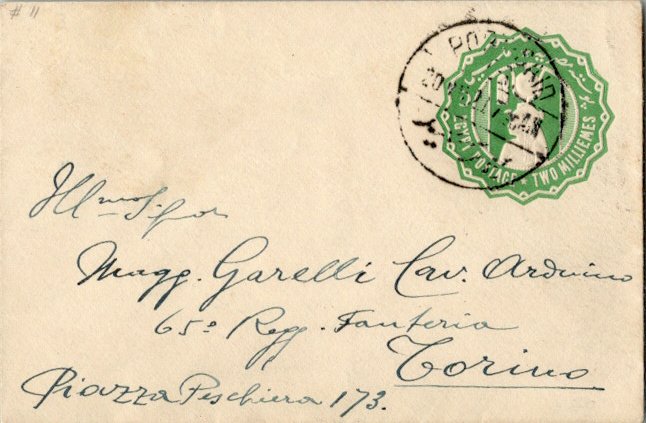 # 11
PORT SAID
EGYPT POSTAGE
TWO MILLIEMES
Ill mo Sigor
Magg. Garelli Cav. Arduino
65º Regg. Fanteria
Torino
Piazza Peschiera 173.